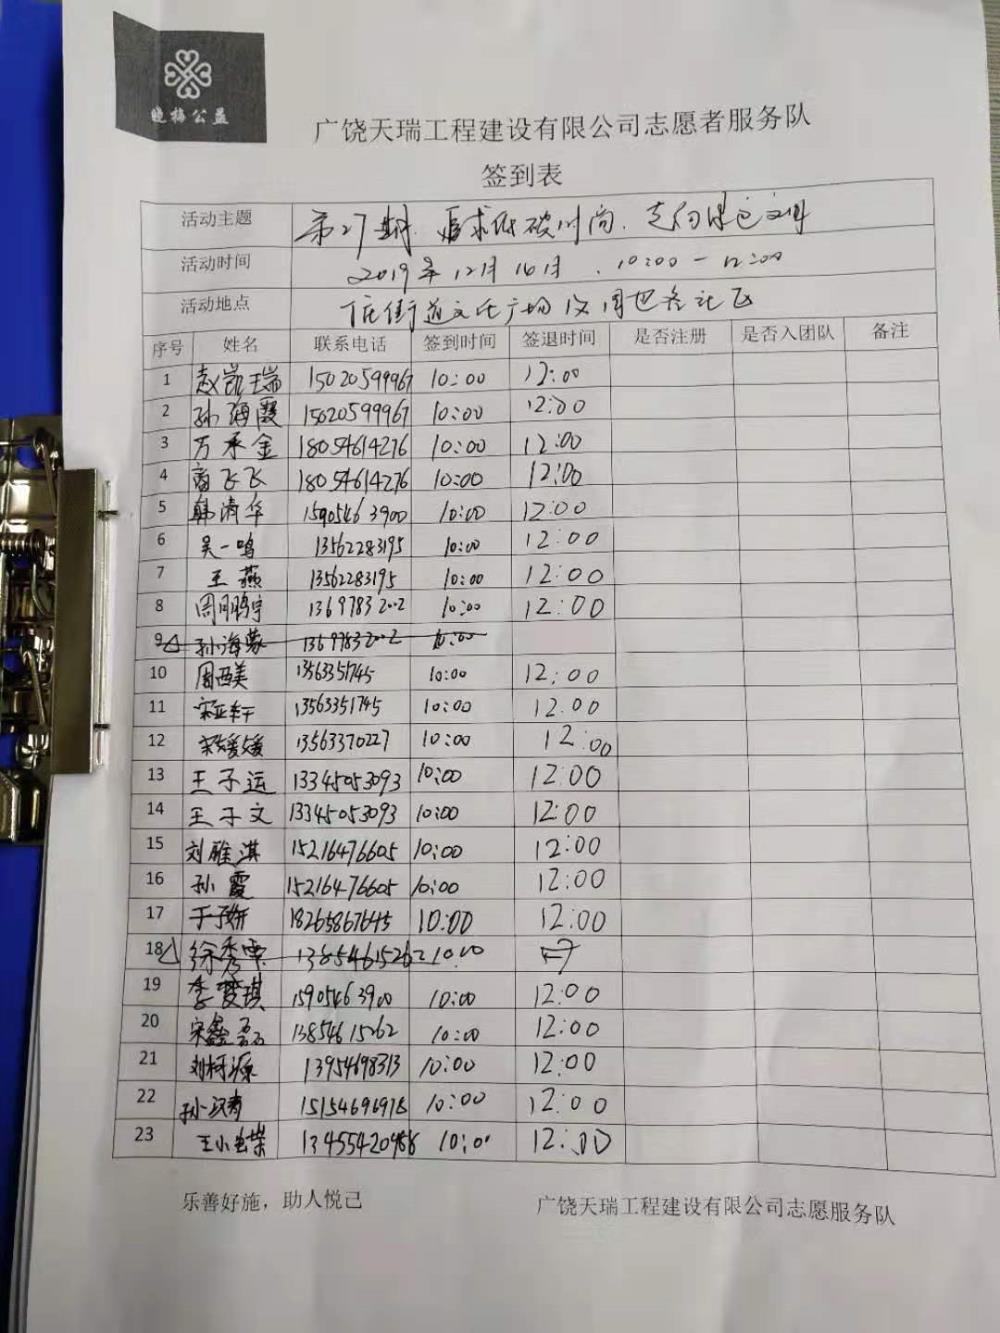 晓梅公益
广饶天瑞工程建设有限公司志愿者服务队
签到表
活动主题 第27期. 追求 时尚. 走向
活动时间 2019年12月16日 . 10:00 - 12:00
活动地点 街道文化广场及周边各社区
序号 姓名 联系电话 签到时间 签退时间 是否注册 是否入团队 备注
1 赵凯瑞 15020599967 10:00 12:00
2 孙海霞 15020599967 10:00 12:00
3 万承金 18054614276 10:00 12:00
4 商飞飞 18054614276 10:00 12:00
5 韩清华 15905463900 10:00 12:00
6 吴一鸣 13562283195 10:00 12:00
7 王燕 13562283195 10:00 12:00
8 周鹏宇 13697832002 10:00 12:00
9 孙海 13697832002 10:00
10 周西美 13563351745 10:00 12:00
11 宋亚轩 13563351745 10:00 12.00
12 宋媛媛 13563370227 10:00 12:00
13 王子运 13345053093 10:00 12:00
14 王子文 13345053093 10:00 12:00
15 刘雅淇 15216476605 10:00 12:00
16 孙霞 15216476605 10:00 12:00
17 于子妍 18265867645 10:00 12:00
18 徐秀 13854615262 10:00
19 李梦琪 15905463900 10:00 12:00
20 宋鑫磊 13854615262 10:00 12:00
21 刘柯源 13954698313 10:00 12:00
22 孙 15154696978 10:00 12:00
23 王小 13455420988 10:0 12:00
乐善好施，助人悦己 广饶天瑞工程建设有限公司志愿服务队